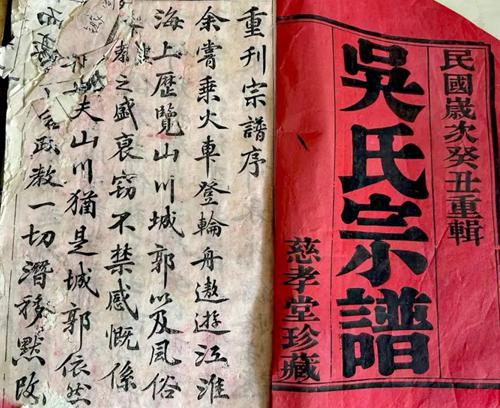 民國歲次癸丑重輯
吳氏宗譜
慈孝堂珍藏
重刊宗譜序
余嘗乘火車登輪舟遨遊江淮
海上歷覽山川城郭以及風俗
之盛衰竊不禁感慨係
夫山川猶是城郭依然
政教一切潛移默改